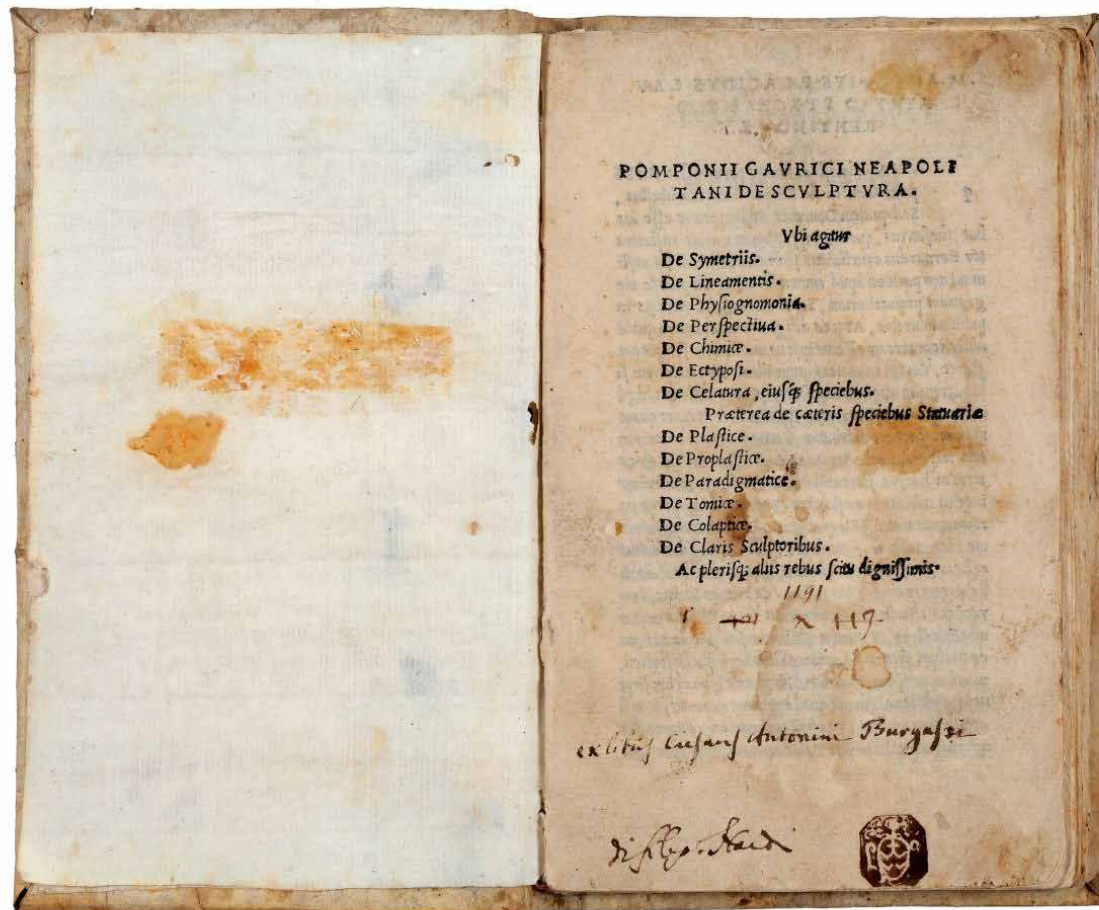 POMPONII GAVRICI NEAPOLI
TANI DE SCVLPTVRA.
Vbi agitur
De Symetriis.
De Lineamentis.
De Physiognomonia.
De Perspectiua.
De Chimice.
De Ectyposi.
De Celatura, eiusq; speciebus.
Præterea de cæteris speciebus Statuariæ
De Plastice.
De Proplastice.
De Paradigmatice.
De Tomice.
De Colaptice.
De Claris Sculptoribus.
Ac plerisq; aliis rebus scitu dignissimis.
1191
119
ex libris Caesaris Antonini Burgassi
di